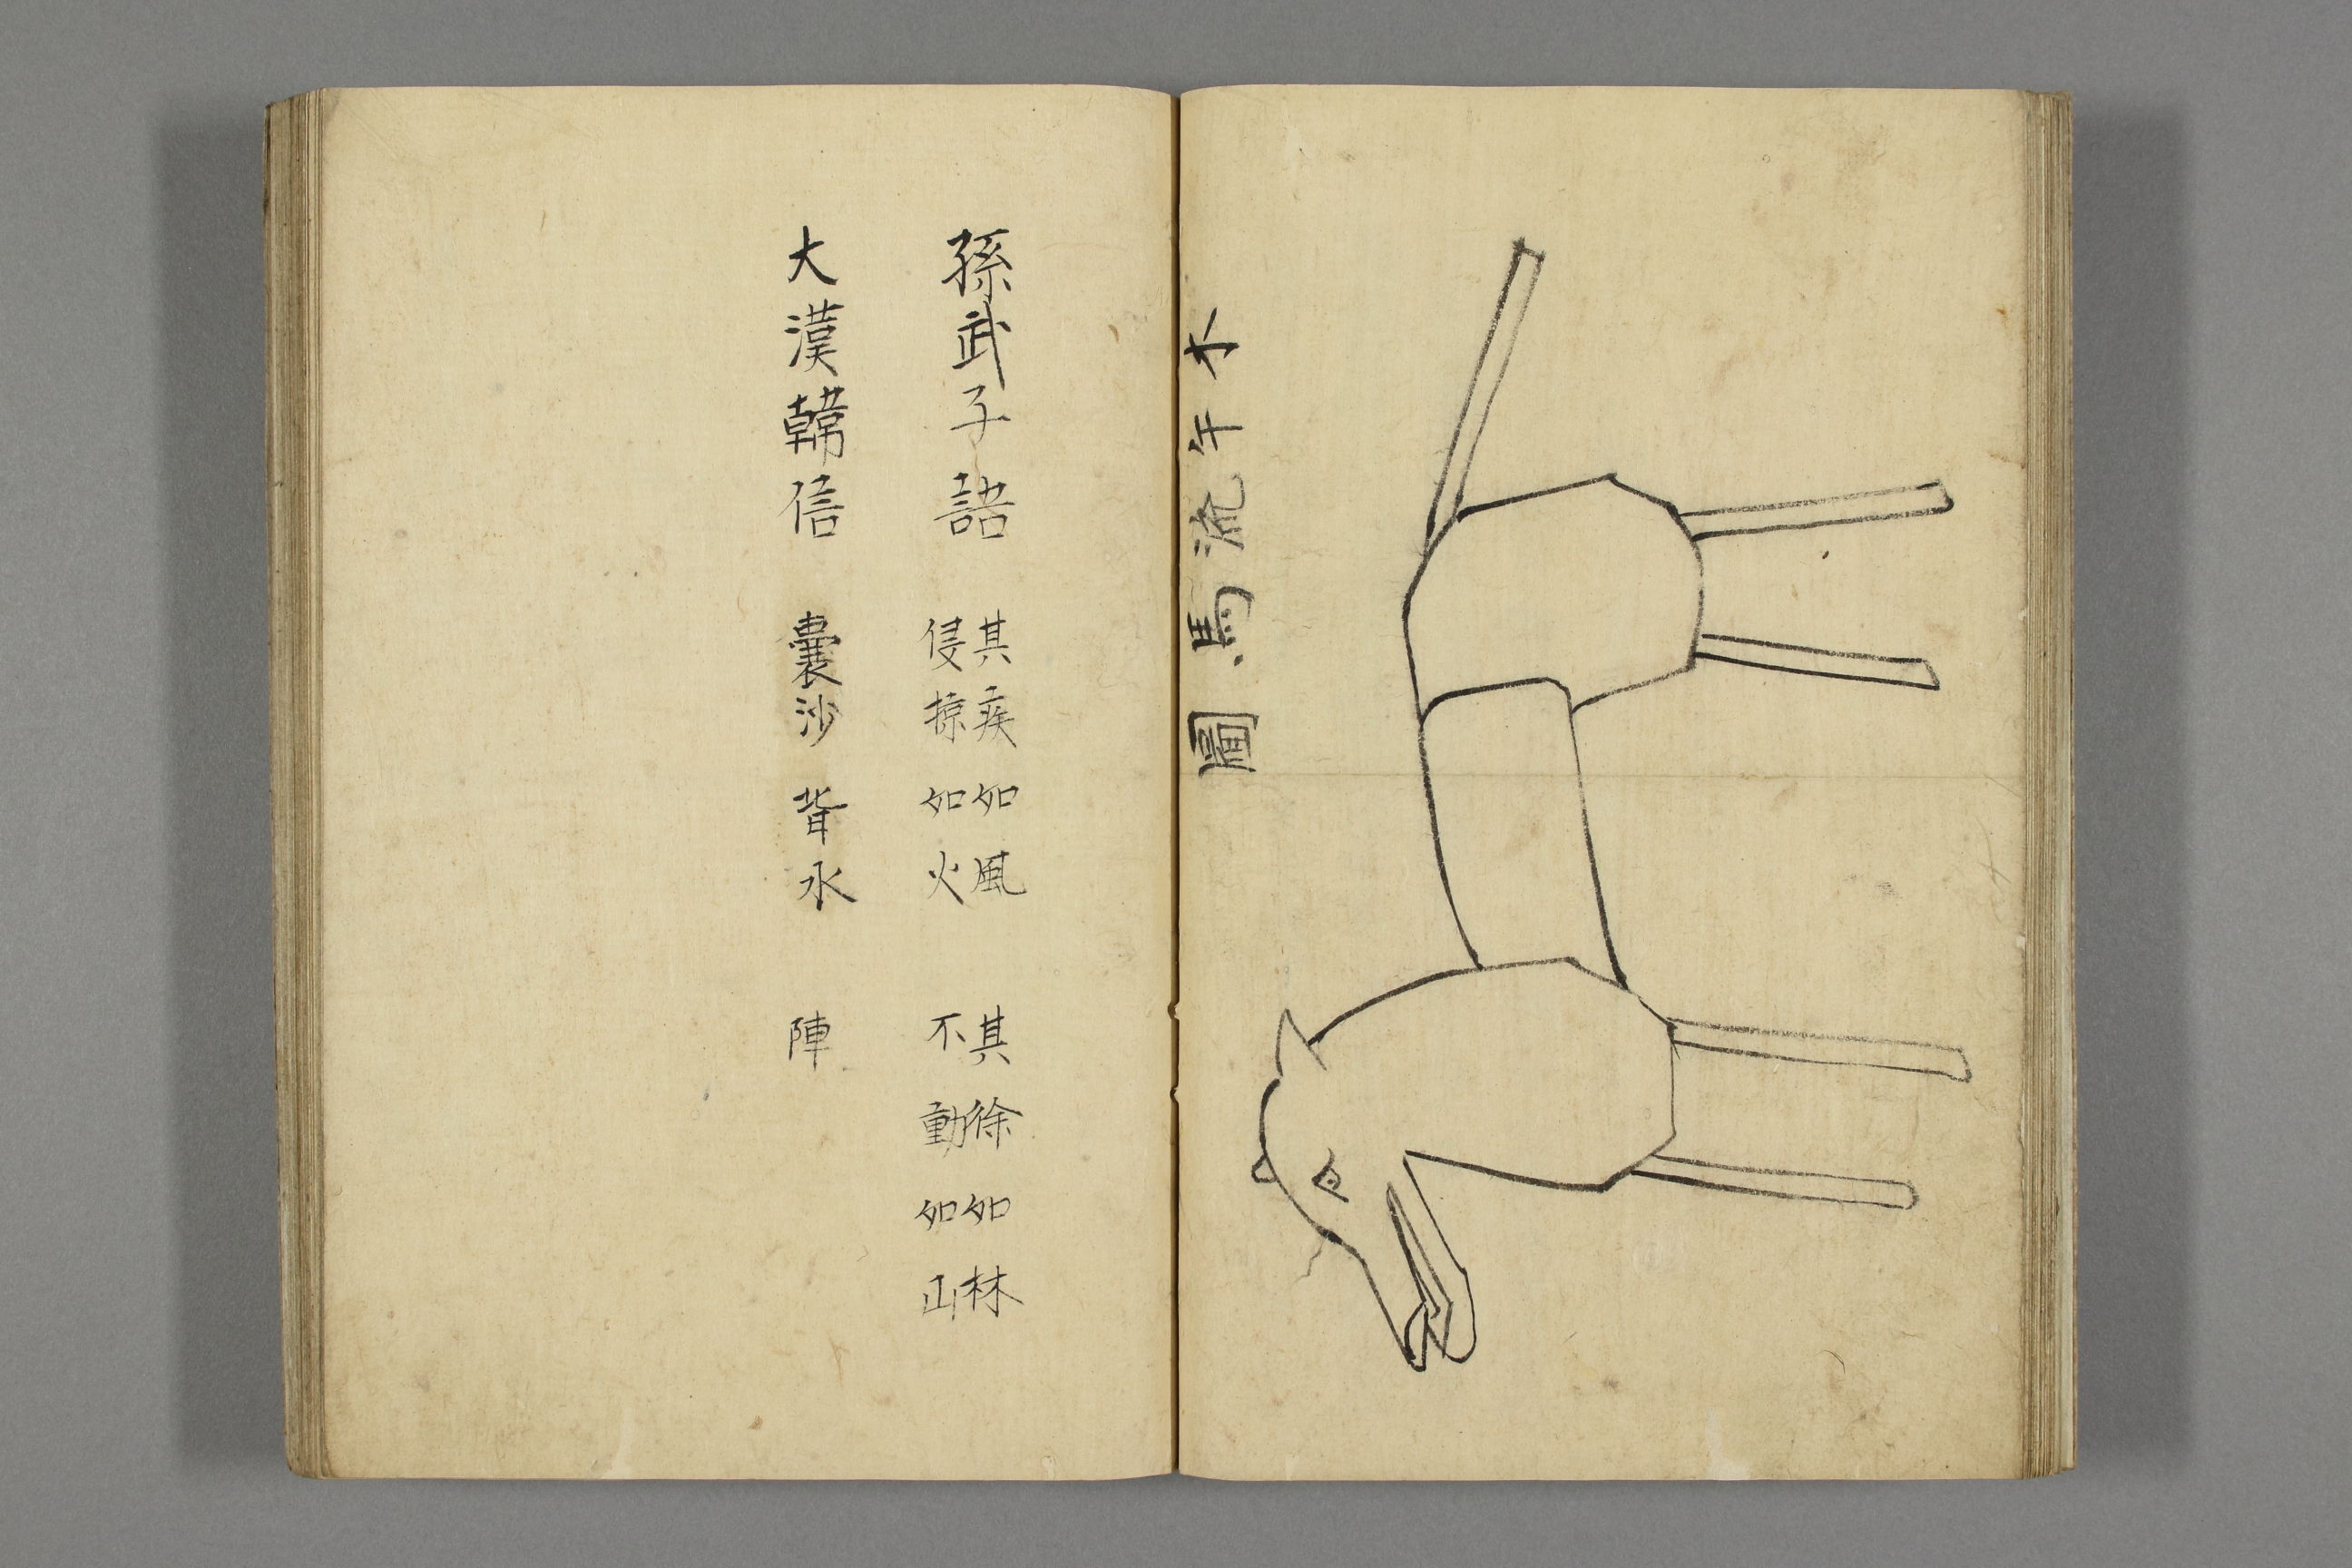 木牛流馬圖
孫武子語
其疾如風 其徐如林
侵掠如火 不動如山
大漢韓信 囊沙背水 陣